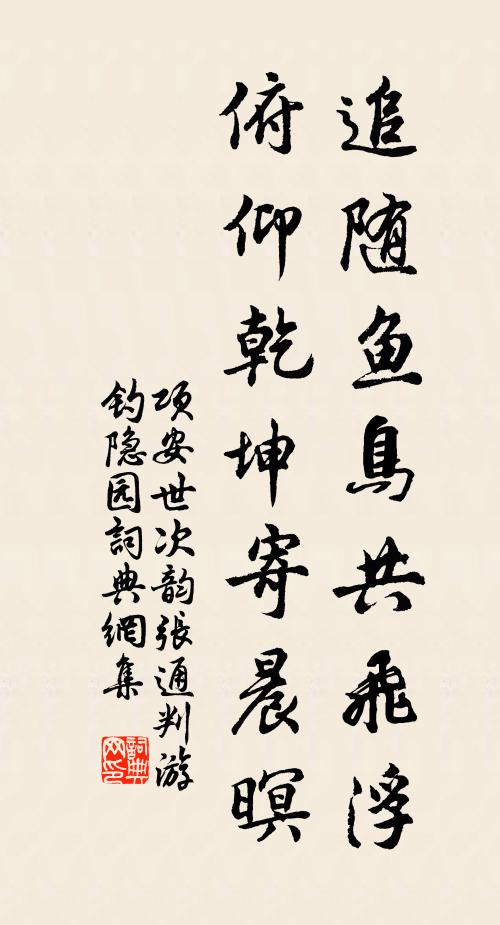 追随鱼鳥共飛浮
俯仰乾坤寄晨暝
项安世次韵張通判游
钓隐园詞典網集
詞典網印